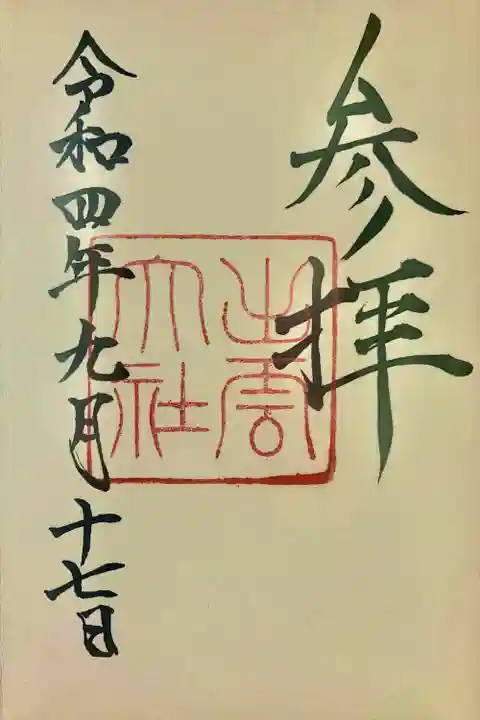 参拝
出雲大社
令和四年九月十七日